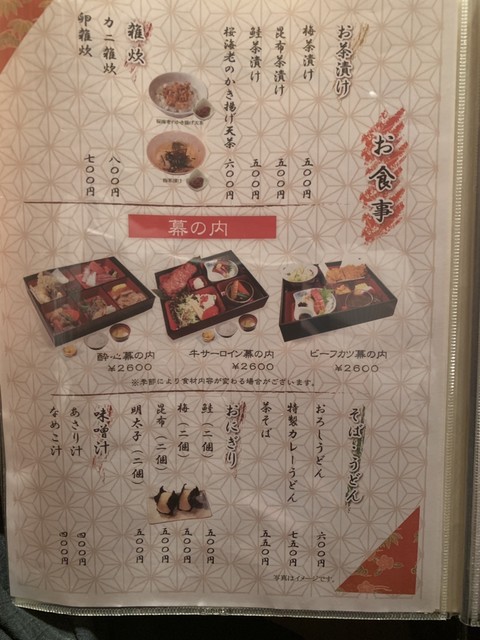 お食事
お茶漬け
梅茶漬け 五〇〇円
昆布茶漬け 五〇〇円
鮭茶漬け 五〇〇円
桜海老のかき揚げ天茶 六〇〇円
雑炊
カニ雑炊 八〇〇円
卵雑炊 七〇〇円
幕の内
酔心幕の内
¥2600
牛サーロイン幕の内
¥2600
ビーフカツ幕の内
¥2600
※季節により食材内容が変わる場合がございます。
そば・うどん
おろしうどん 六〇〇円
特製カレーうどん 七五〇円
茶そば 五五〇円
おにぎり
鮭(二個) 五〇〇円
梅(二個) 五〇〇円
昆布(二個) 五〇〇円
明太子(二個) 五〇〇円
味噌汁
あさり汁 四〇〇円
なめこ汁 四〇〇円
写真はイメージです。